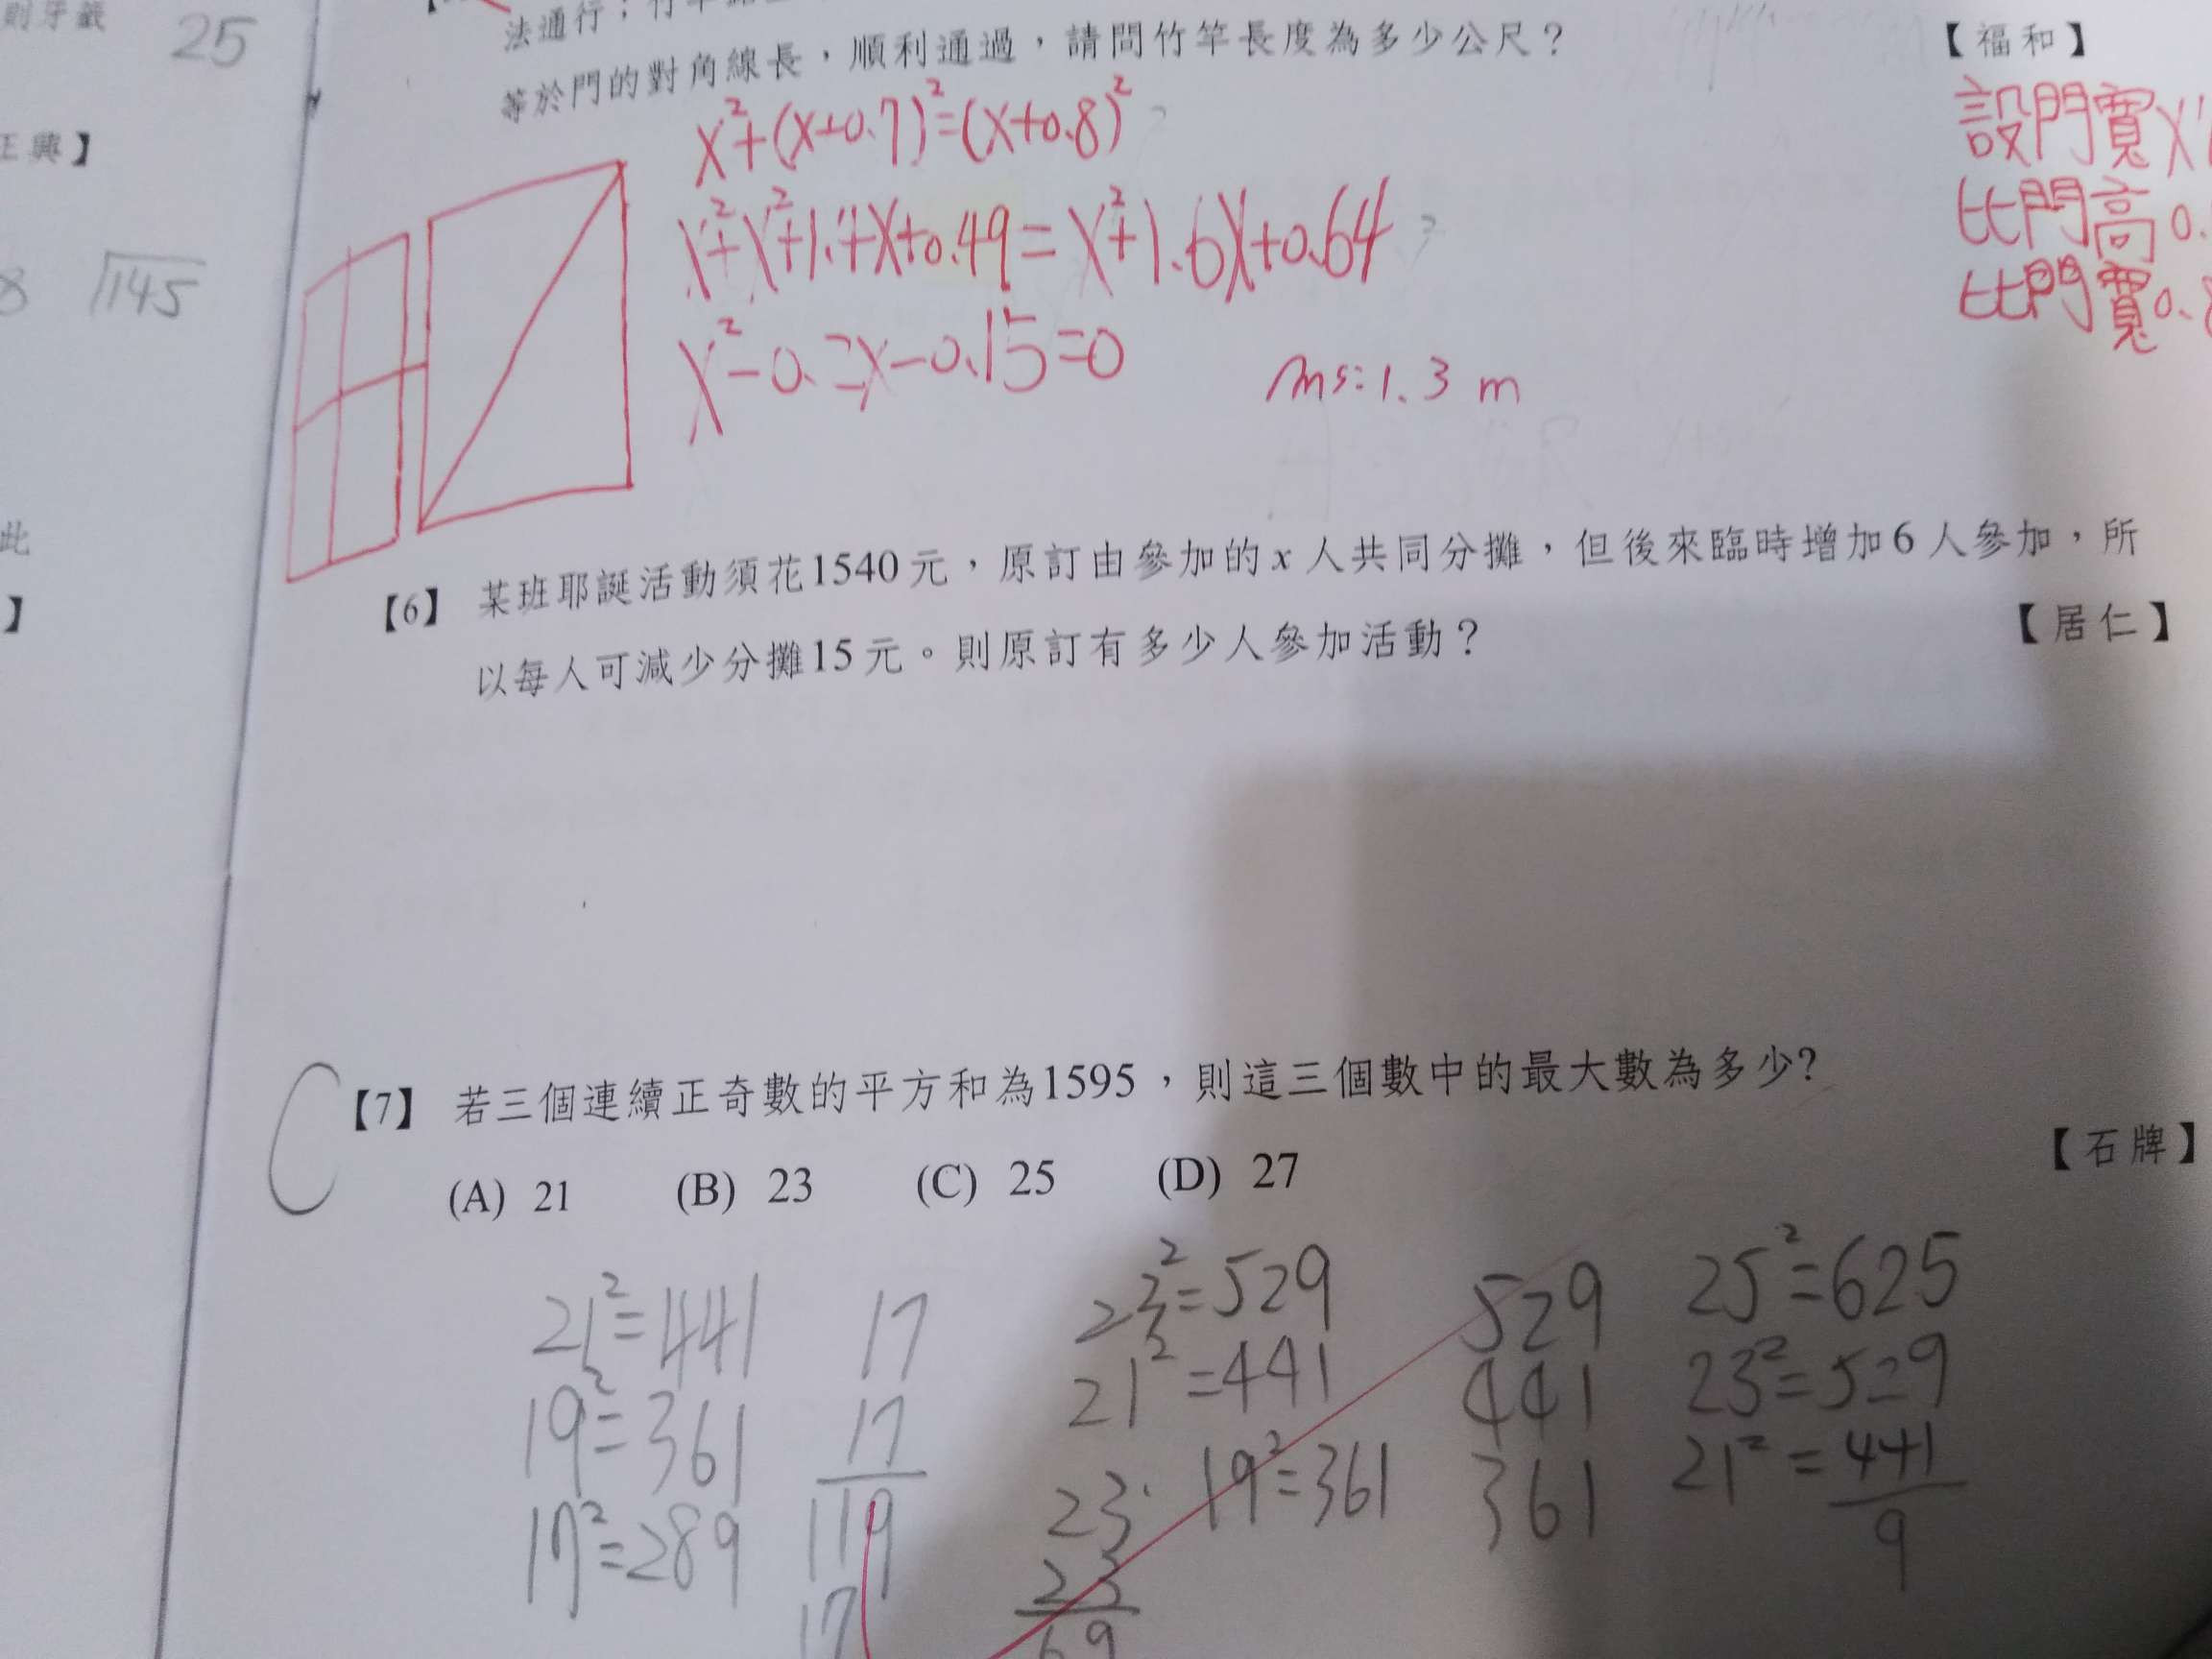 則牙籤
25
法通行；竹竿
等於門的對角線長，順利通過，請問竹竿長度為多少公尺？
【福和】
x²+(x+0.7)²=(x+0.8)²
x²+x²+1.4x+0.49=x²+1.6x+0.64
x²-0.2x-0.15=0
Ans:1.3 m
設門寬x
比門高0.
比門寬0.8
興】
8
√145
此
】
【6】 某班耶誕活動須花1540元，原訂由參加的x人共同分攤，但後來臨時增加6人參加，所
以每人可減少分攤15元。則原訂有多少人參加活動？
【居仁】
C
【7】 若三個連續正奇數的平方和為1595，則這三個數中的最大數為多少?
【石牌】
(A) 21 (B) 23 (C) 25 (D) 27
21²=441
19²=361
17²=289
17
17
119
17
23²=529
21²=441
19²=361
23
23
69
529
441
361
25²=625
23²=529
21²=441
9